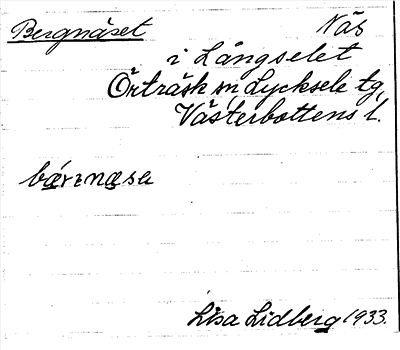 Bergnäset Näs
i Långselet
Örträsk sn Lycksele tg,
Västerbottens l.
Lisa Lidberg 1933.